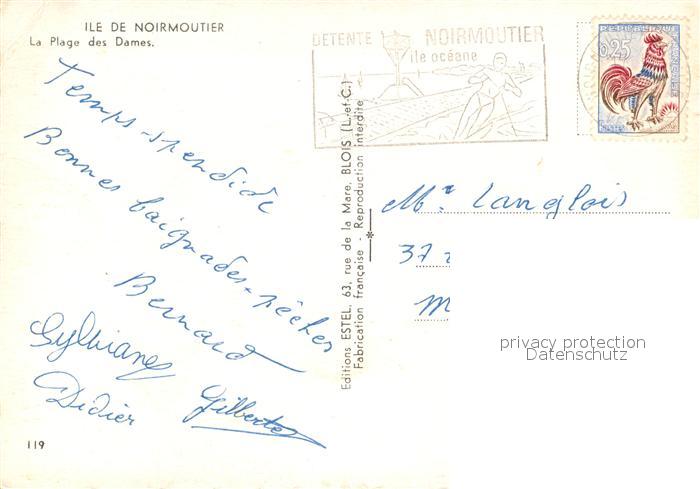 ILE DE NOIRMOUTIER
La Plage des Dames.
DETENTE NOIRMOUTIER
ile océane
REPUBLIQUE FRANÇAISE
0,25
POSTES
Temps splendide
Bonnes baignades - pêches
Bernard
Sylviane
Gilberte
Didier
119
Editions ESTEL, 63, rue de la Mare, BLOIS (L.-et-C.)
Fabrication française - Reproduction interdite
Mr Langlois
37
M
privacy protection
Datenschutz